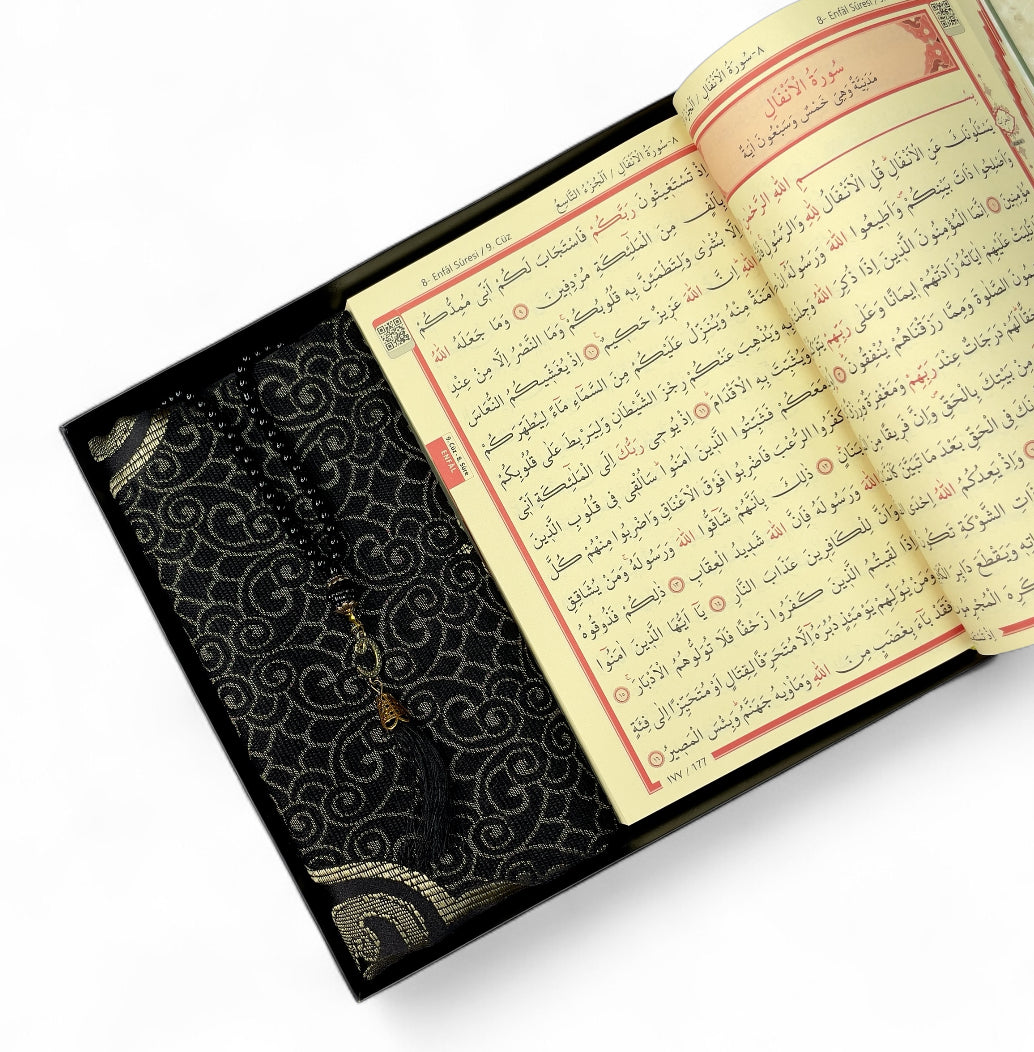 8- Enfâl Sûresi /
٨-سُورَةُ الْاَنْفَالِ / الْجُزْءُ
سُورَةُ الْاَنْفَالِ
مَدَنِيَّةٌ وَهِيَ خَمْسٌ وَسَبْعُونَ اٰيَةً
يَسْـَٔلُونَكَ عَنِ الْاَنْفَالِ قُلِ الْاَنْفَالُ لِلّٰهِ وَالرَّسُولِ
وَاَصْلِحُوا ذَاتَ بَيْنِكُمْ وَاَطٖيعُوا اللّٰهَ وَرَسُولَهُٓ
مُؤْمِنٖينَ ١ اِنَّمَا الْمُؤْمِنُونَ الَّذٖينَ اِذَا ذُكِرَ اللّٰهُ وَجِلَتْ
عَلَيْهِمْ اٰيَاتُهُ زَادَتْهُمْ اٖيمَانًا وَعَلٰى رَبِّهِمْ
الصَّلٰوةَ وَمِمَّا رَزَقْنَاهُمْ يُنْفِقُونَ
لَهُمْ دَرَجَاتٌ عِنْدَ رَبِّهِمْ وَمَغْفِرَةٌ
مِنْ بَيْتِكَ بِالْحَقِّ وَاِنَّ فَرٖيقًا
فِي الْحَقِّ بَعْدَ مَا تَبَيَّنَ
وَاِذْ يَعِدُكُمُ اللّٰهُ اِحْدَى
الشَّوْكَةِ تَكُونُ
وَيَقْطَعَ دَابِرَ
8- Enfâl Sûresi / 9. Cüz
٨-سُورَةُ الْاَنْفَالِ / اَلْجُزْءُ التَّاسِعُ
اِذْ تَسْتَغٖيثُونَ رَبَّكُمْ فَاسْتَجَابَ لَكُمْ اَنّٖي مُمِدُّكُمْ
بِاَلْفٍ مِنَ الْمَلٰٓئِكَةِ مُرْدِفٖينَ ٩ وَمَا جَعَلَهُ اللّٰهُ
اِلَّا بُشْرٰى وَلِتَطْمَئِنَّ بِهٖ قُلُوبُكُمْ وَمَا النَّصْرُ اِلَّا مِنْ عِنْدِ
اللّٰهِ اِنَّ اللّٰهَ عَزٖيزٌ حَكٖيمٌ ١٠ اِذْ يُغَشّٖيكُمُ النُّعَاسَ
اَمَنَةً مِنْهُ وَيُنَزِّلُ عَلَيْكُمْ مِنَ السَّمَٓاءِ مَٓاءً لِيُطَهِّرَكُمْ
بِهٖ وَيُذْهِبَ عَنْكُمْ رِجْزَ الشَّيْطَانِ وَلِيَرْبِطَ عَلٰى قُلُوبِكُمْ
وَيُثَبِّتَ بِهِ الْاَقْدَامَ ١١ اِذْ يُوحٖي رَبُّكَ اِلَى الْمَلٰٓئِكَةِ اَنّٖي
مَعَكُمْ فَثَبِّتُوا الَّذٖينَ اٰمَنُوا سَاُلْقٖي فٖي قُلُوبِ الَّذٖينَ
كَفَرُوا الرُّعْبَ فَاضْرِبُوا فَوْقَ الْاَعْنَاقِ وَاضْرِبُوا مِنْهُمْ كُلَّ
بَنَانٍ ١٢ ذٰلِكَ بِاَنَّهُمْ شَٓاقُّوا اللّٰهَ وَرَسُولَهُ وَمَنْ يُشَاقِقِ
اللّٰهَ وَرَسُولَهُ فَاِنَّ اللّٰهَ شَدٖيدُ الْعِقَابِ ١٣ ذٰلِكُمْ فَذُوقُوهُ
وَاَنَّ لِلْكَافِرٖينَ عَذَابَ النَّارِ ١٤ يَٓا اَيُّهَا الَّذٖينَ اٰمَنُٓوا
اِذَا لَقٖيتُمُ الَّذٖينَ كَفَرُوا زَحْفًا فَلَا تُوَلُّوهُمُ الْاَدْبَارَ ١٥
وَمَنْ يُوَلِّهِمْ يَوْمَئِذٍ دُبُرَهُٓ اِلَّا مُتَحَرِّفًا لِقِتَالٍ اَوْ مُتَحَيِّزًا اِلٰى فِئَةٍ
فَقَدْ بَٓاءَ بِغَضَبٍ مِنَ اللّٰهِ وَمَأْوٰيهُ جَهَنَّمُ وَبِئْسَ الْمَصٖيرُ ١٦
١٧٧ / 177
9.Cüz - 8.Sûre
ENFÂL